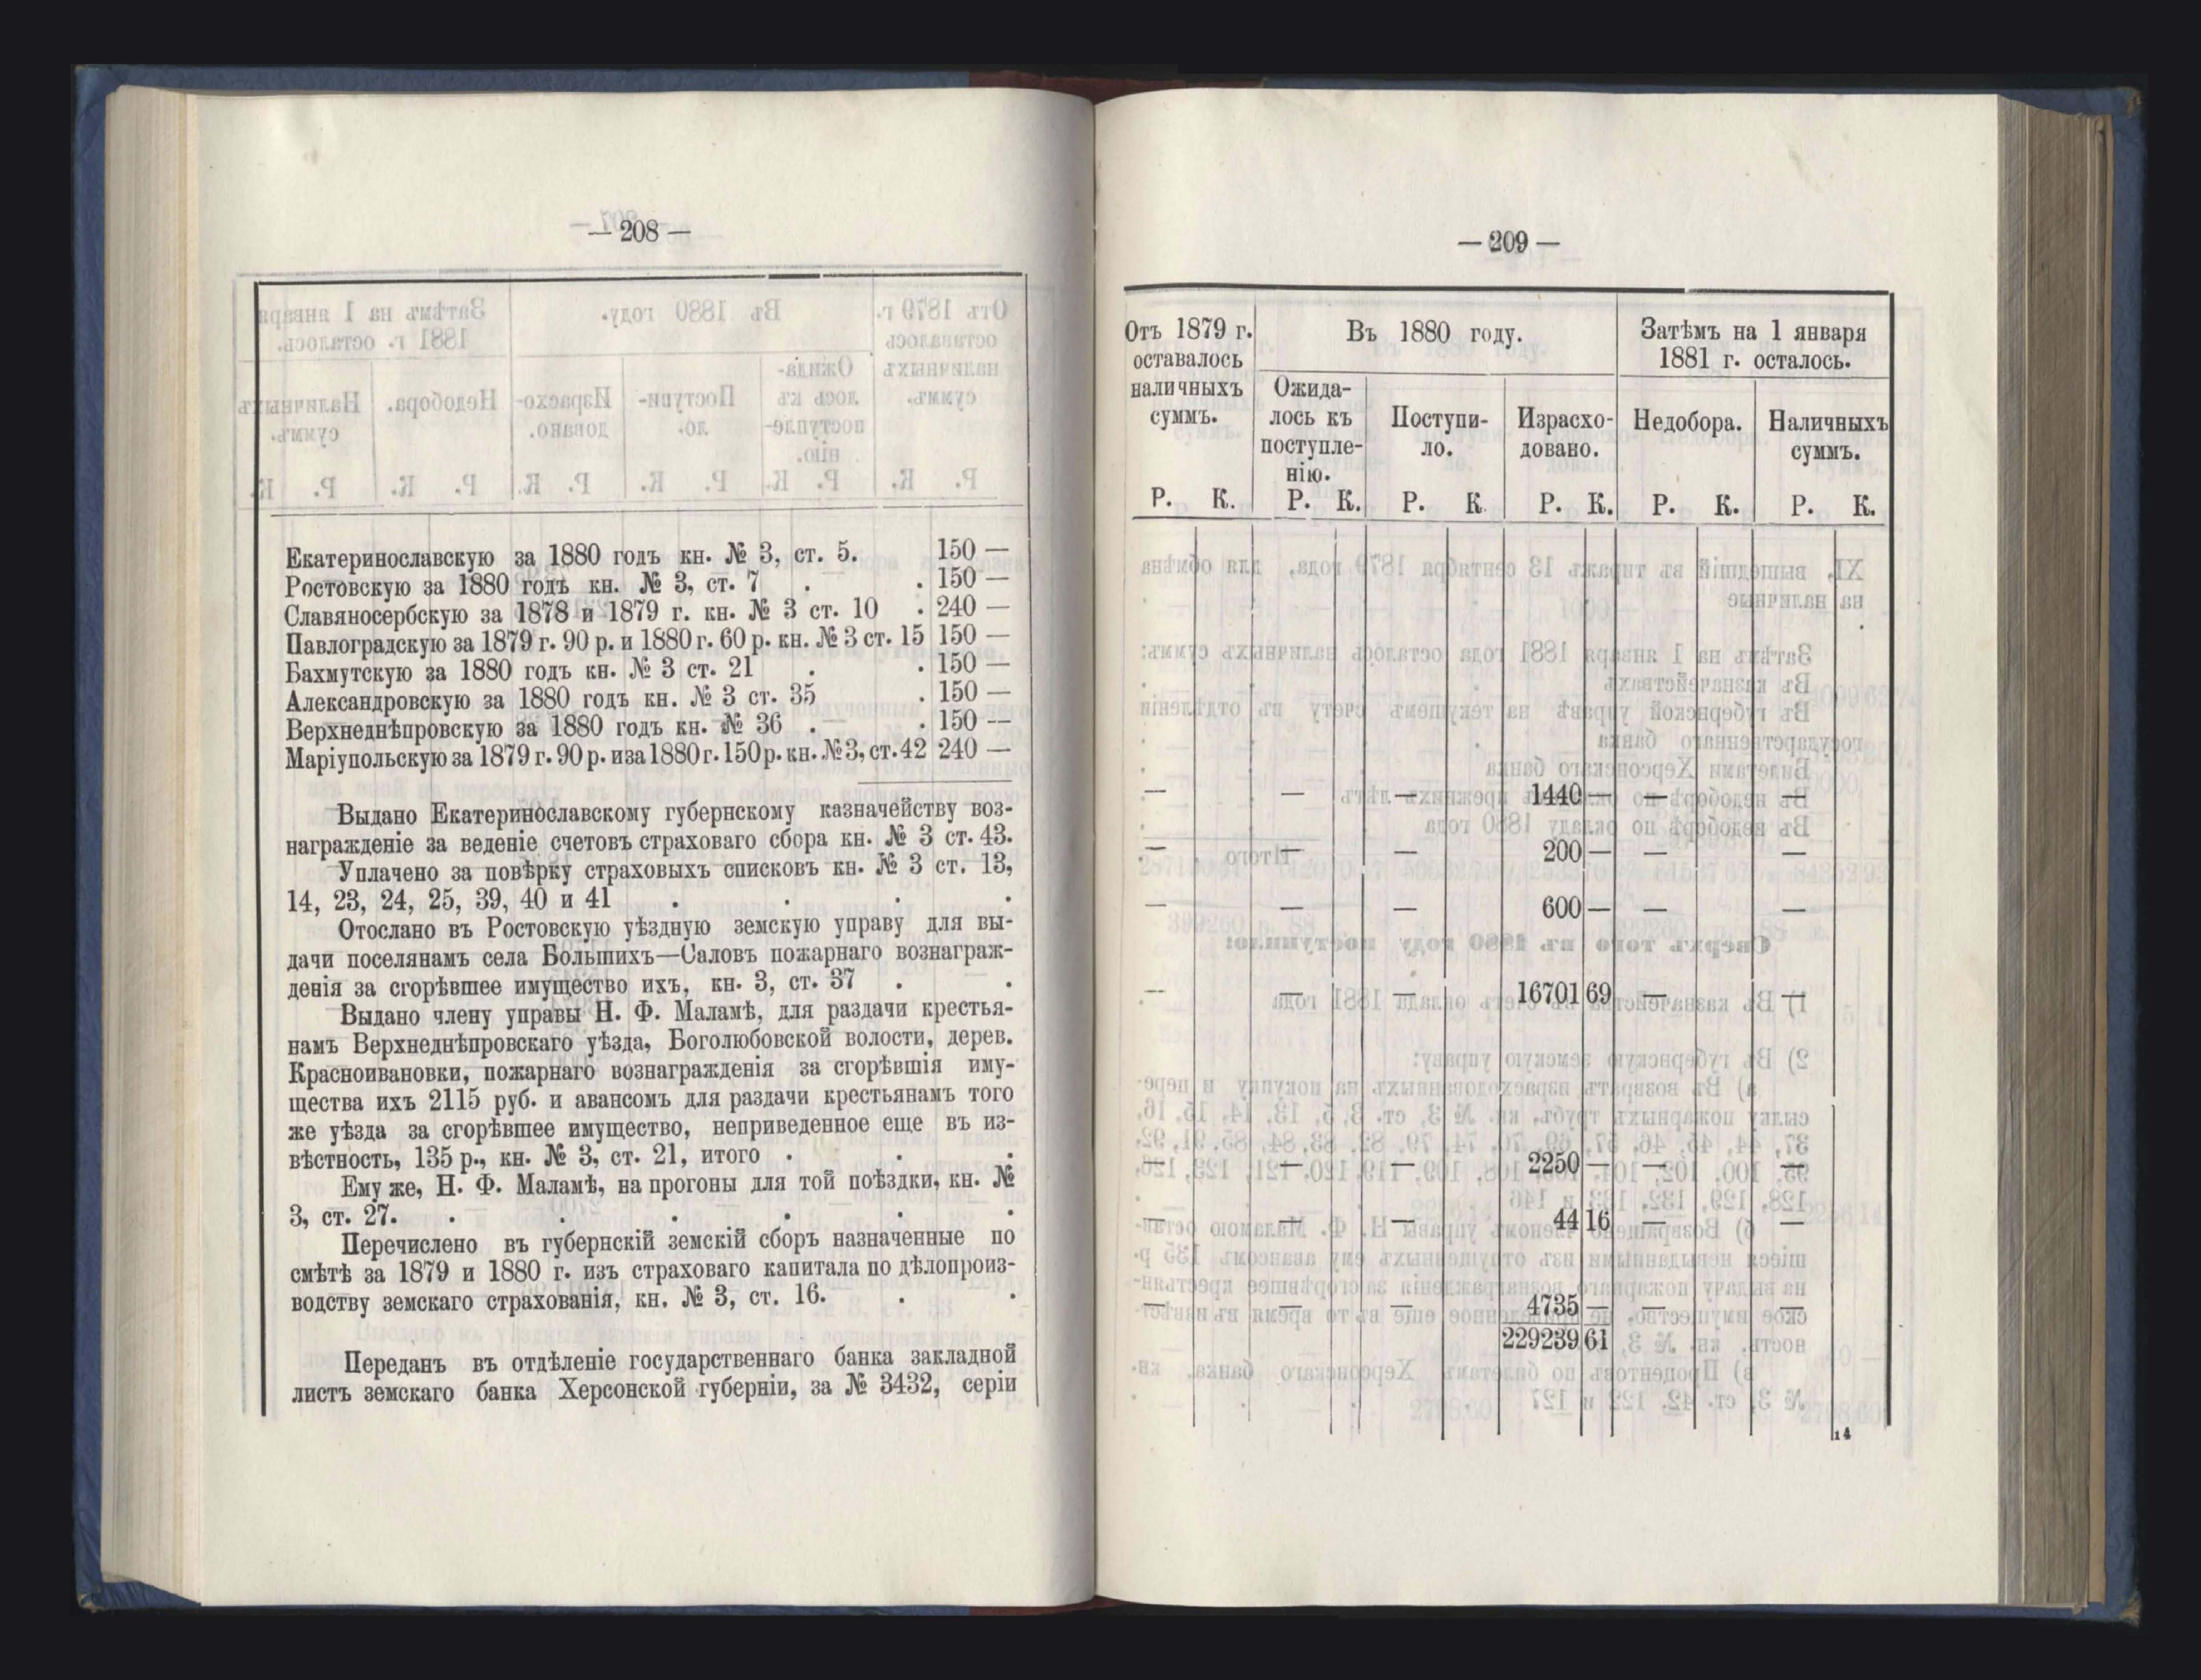 — 208 —
Екатеринославскую за 1880 годъ кн. № 3, ст. 5. 150 —
Ростовскую за 1880 годъ кн. № 3, ст. 7 . . 150 —
Славяносербскую за 1878 и 1879 г. кн. № 3 ст. 10 . 240 —
Павлоградскую за 1879 г. 90 р. и 1880 г. 60 р. кн. № 3 ст. 15 150 —
Бахмутскую за 1880 годъ кн. № 3 ст. 21 . . 150 —
Александровскую за 1880 годъ кн. № 3 ст. 35 . 150 —
Верхнеднѣпровскую за 1880 годъ кн. № 36 . . 150 —
Маріупольскую за 1879 г. 90 р. и за 1880 г. 150 р. кн. № 3, ст. 42 240 —
Выдано Екатеринославскому губернскому казначейству воз-
награжденіе за веденіе счетовъ страховаго сбора кн. № 3 ст. 43.
Уплачено за повѣрку страховыхъ списковъ кн. № 3 ст. 13,
14, 23, 24, 25, 39, 40 и 41 . . . .
Отослано въ Ростовскую уѣздную земскую управу для вы-
дачи поселянамъ села Большихъ—Саловъ пожарнаго вознаграж-
денія за сгорѣвшее имущество ихъ, кн. 3, ст. 37 . .
Выдано члену управы Н. Ф. Маламѣ, для раздачи крестья-
намъ Верхнеднѣпровскаго уѣзда, Боголюбовской волости, дерев.
Красноивановки, пожарнаго вознагражденія за сгорѣвшія иму-
щества ихъ 2115 руб. и авансомъ для раздачи крестьянамъ того
же уѣзда за сгорѣвшее имущество, неприведенное еще въ из-
вѣстность, 135 р., кн. № 3, ст. 21, итого . . .
Ему же, Н. Ф. Маламѣ, на прогоны для той поѣздки, кн. №
3, ст. 27. . . . . . .
Перечислено въ губернскій земскій сборъ назначенные по
смѣтѣ за 1879 и 1880 г. изъ страховаго капитала по дѣлопроиз-
водству земскаго страхованія, кн. № 3, ст. 16. . .
Переданъ въ отдѣленіе государственнаго банка закладной
листъ земскаго банка Херсонской губерніи, за № 3432, серіи
— 209 —
Отъ 1879 г.
оставалось
наличныхъ
суммъ.
Р. К.
Въ 1880 году.
Ожида-
лось къ
поступле-
нію.
Р. К.
Поступи-
ло.
Р. К
Израсхо-
довано.
Р. К.
Затѣмъ на 1 января
1881 г. осталось.
Недобора.
Р. К.
Наличныхъ
суммъ.
Р. К.
— — — 1440 — — —
— — — 200 — — —
— — — 600 — — —
— — — 16701 69 — —
— — — 2250 — — —
— — — 44 16 — —
— — — 4735 — — —
229239 61
14